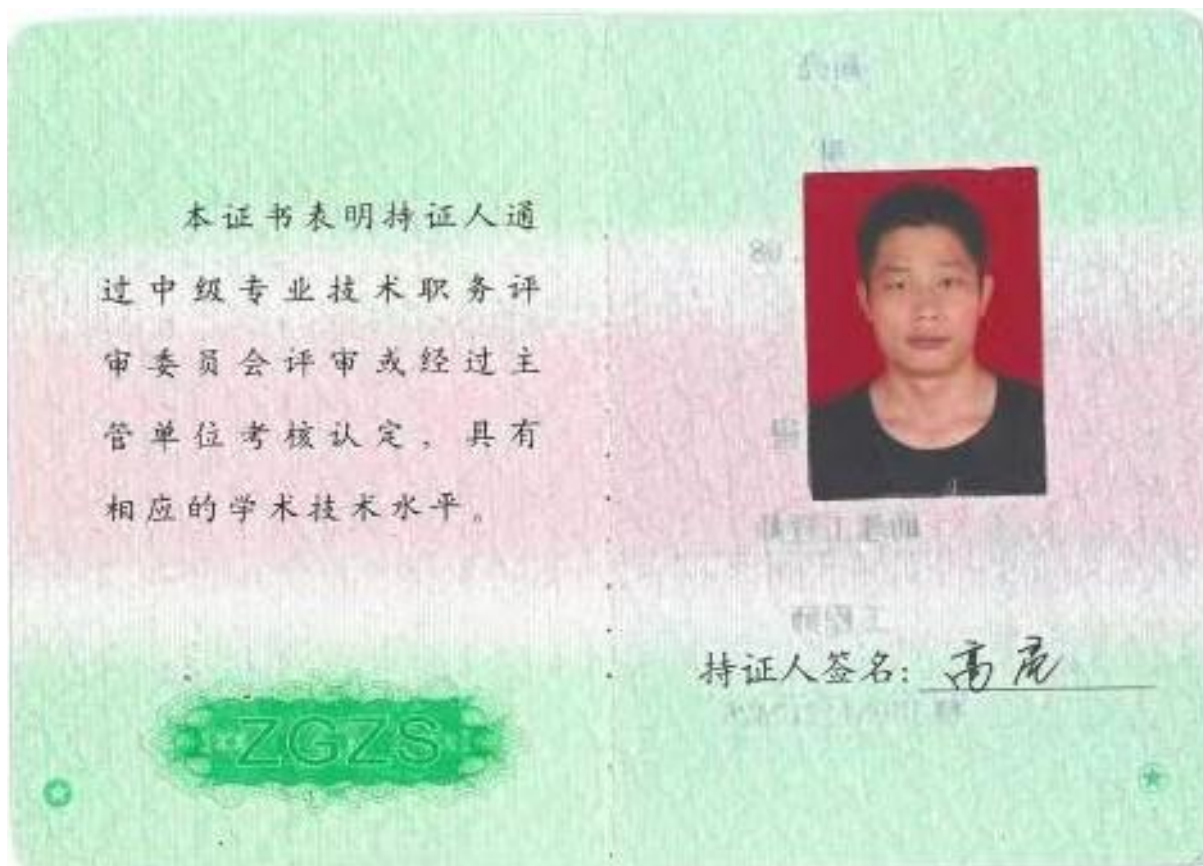 本证书表明持证人通
过中级专业技术职务评
审委员会评审或经过主
管单位考核认定，具有
相应的学术技术水平。
ZGZS
工程师
持证人签名：高